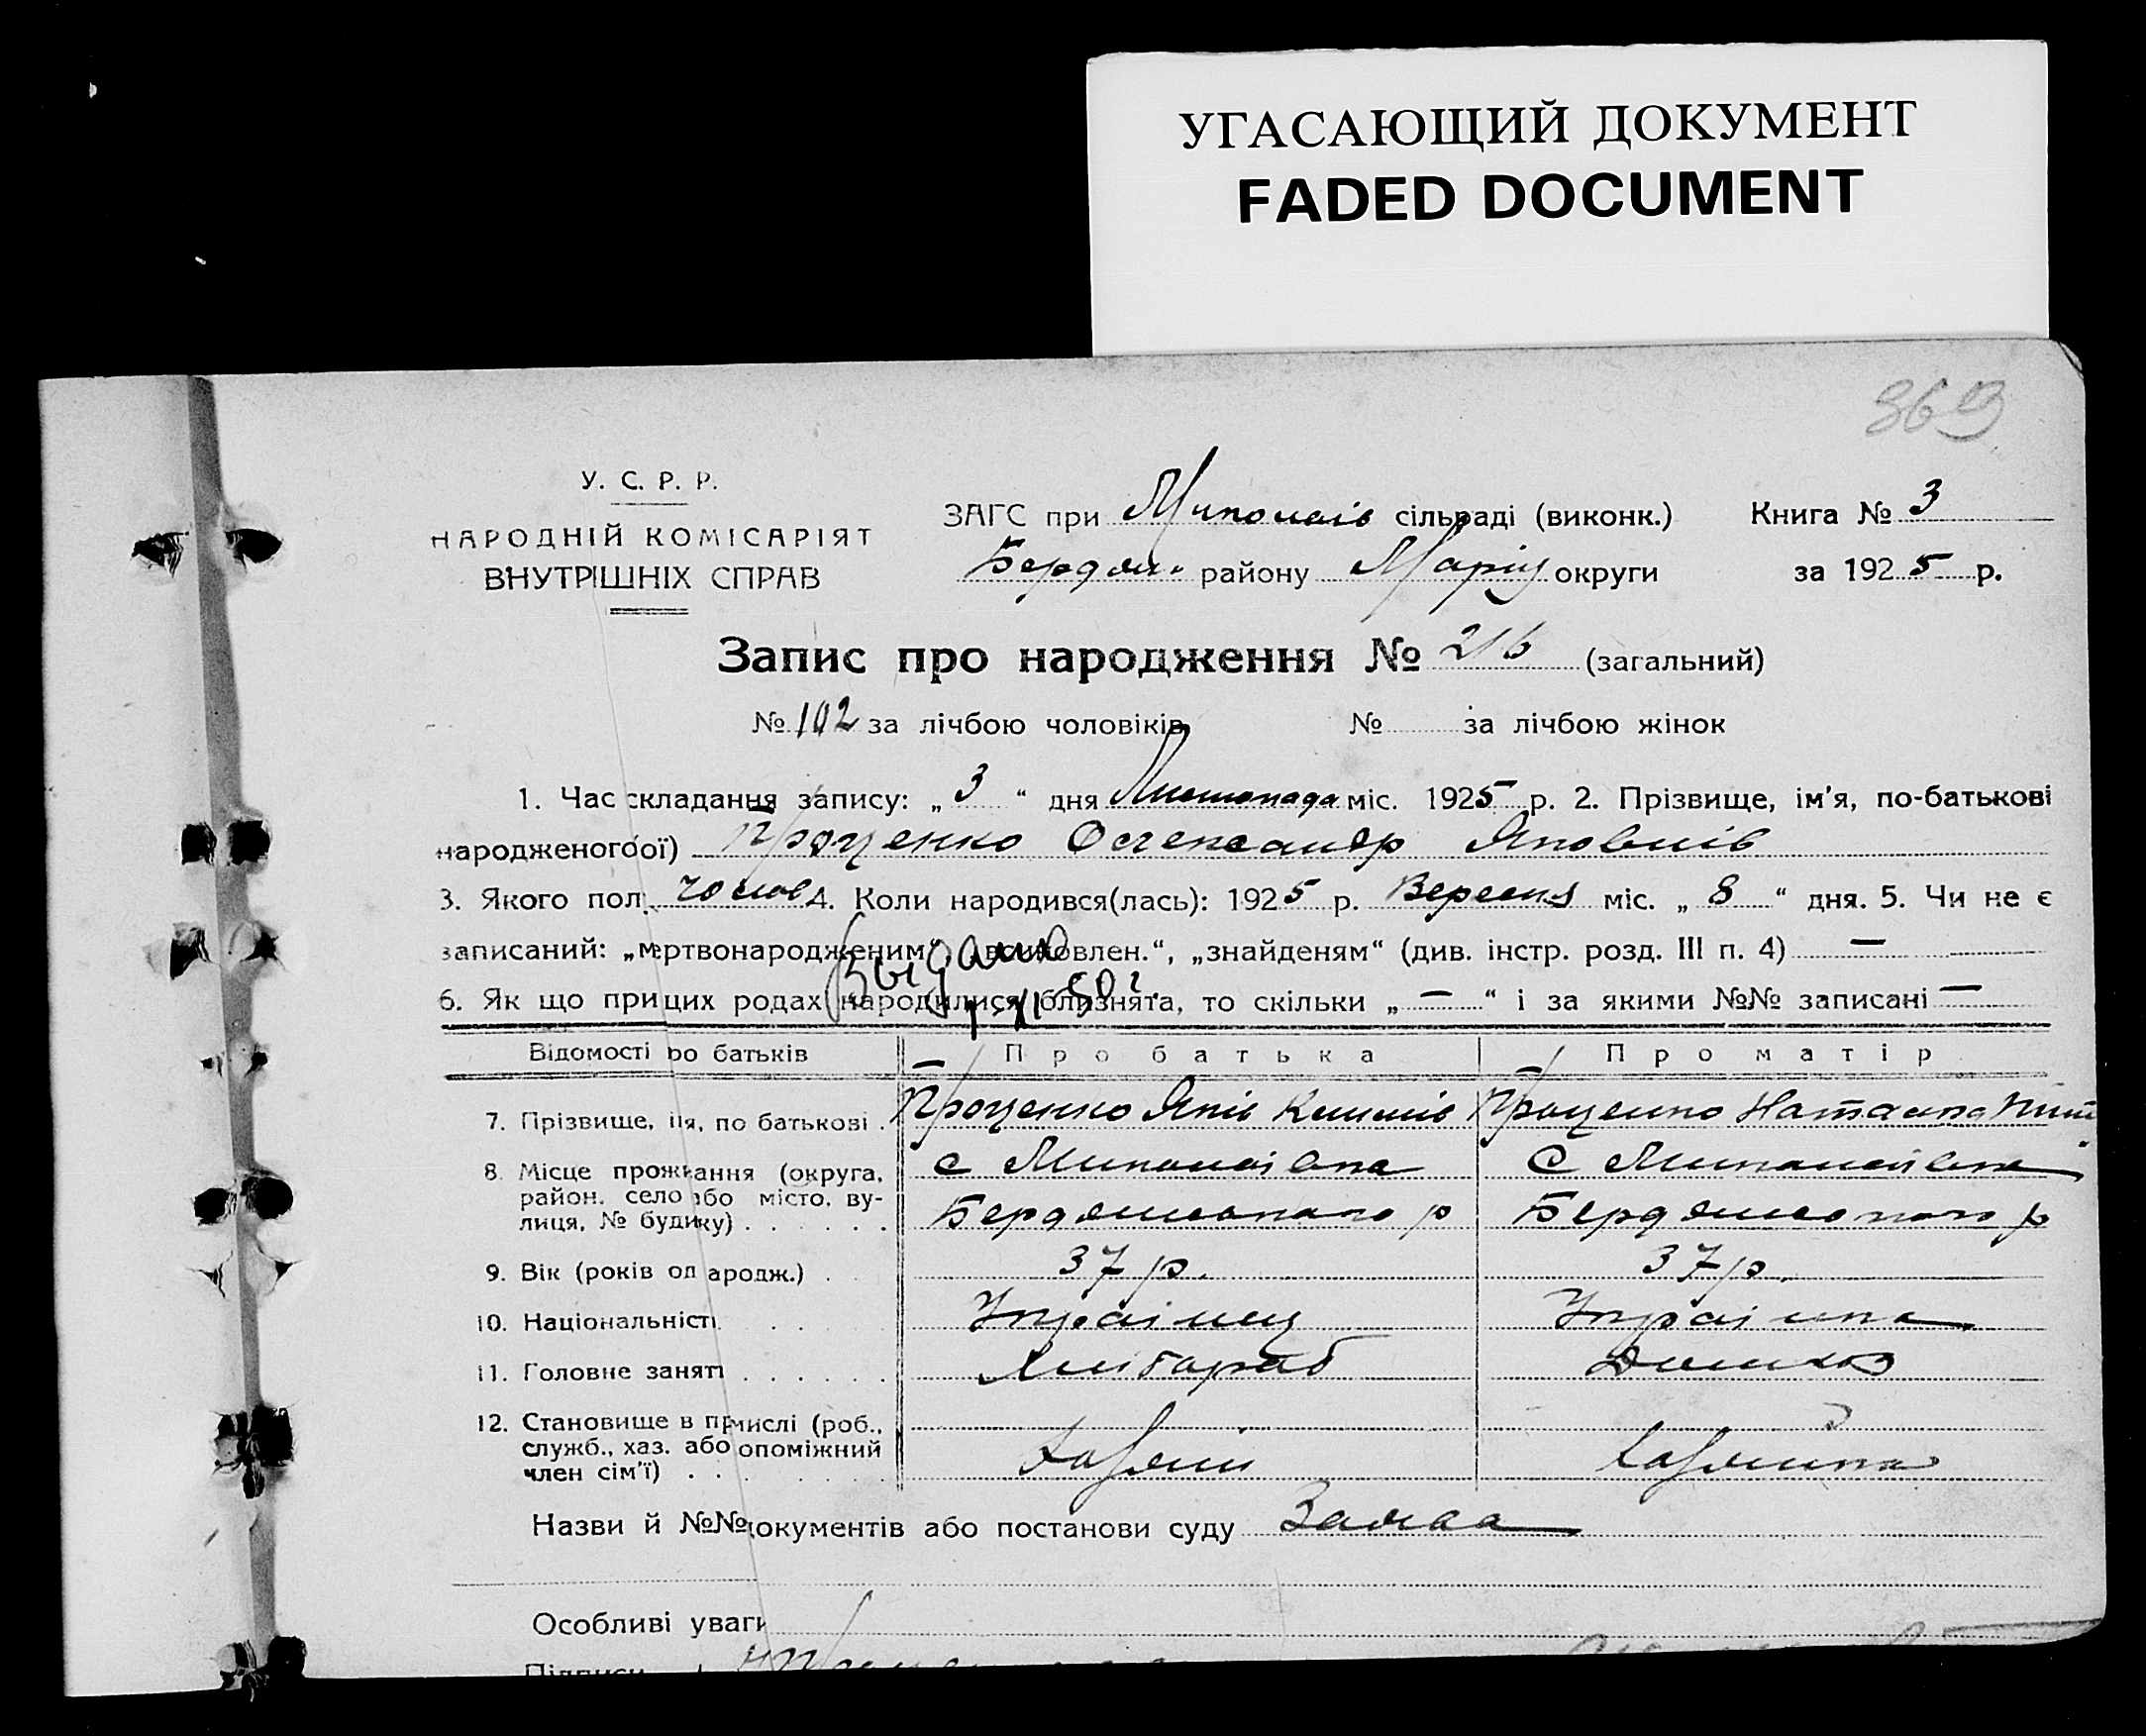 УГАСАЮЩИЙ ДОКУМЕНТ
FADED DOCUMENT
369
У. С. Р. Р.
НАРОДНІЙ КОМІСАРІЯТ
ВНУТРІШНІХ СПРАВ
ЗАГС при Миколаїв сільраді (виконк.) Книга № 3
Бердян. району Маріу округи за 1925 р.
Запис про народження № 216 (загальний)
№ 102 за лічбою чоловіків № за лічбою жінок
1. Час складання запису: „ 3 “ дня Листопада міс. 1925 р. 2. Прізвище, ім'я, по-батькові
народженого(ої) Проценко Олександр Яковлів
3. Якого пол. чолов 4. Коли народився(лась): 1925 р. Вересня міс. „ 8 “ дня. 5. Чи не є
записаний: „мертвонародженим“, „всиновлен.“, „знайденям“ (див. інстр. розд. III п. 4) —
Выдано
6. Як що при цих родах народилися близнята, то скільки „ — “ і за якими №№ записані —
Відомості про батьків Про батька Про матір
7. Прізвище, ім'я, по батькові . Проценко Яків Климів Проценко Наталка
8. Місце прожвання (округа, район, село або місто, ву-лиця, № будинку) . . . . . . с Миколаївка с Миколаївка
Бердянського р Бердянського р
9. Вік (років од народж.) . 37 р. 37 р.
10. Національність Українец Українка
11. Головне заняття . . . . . . Хлібороб Домхоз
12. Становище в промислі (роб., служб., хаз. або допоміжний член сім'ї) . . . Хазяїн Хазяйка
Назви й №№ документів або постанови суду Заява
Особливі уваги
Підписи